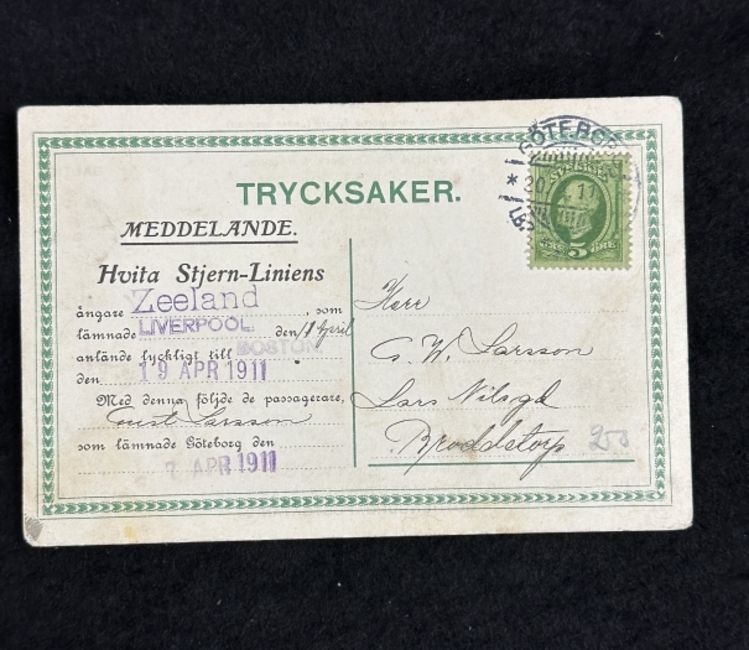 TRYCKSAKER.
MEDDELANDE.
Hvita Stjern-Liniens
ångare Zeeland, som
lämnade LIVERPOOL den 11 April
anlände lyckligt till BOSTON.
den 19 APR 1911
Med denna följde de passagerare,
Gust Larsson
som lämnade Göteborg den
7 APR 1911
GÖTEBORG
20. 11
5
Herr
G. W. Larsson
Lars Nilsgd
Broddetorp
250